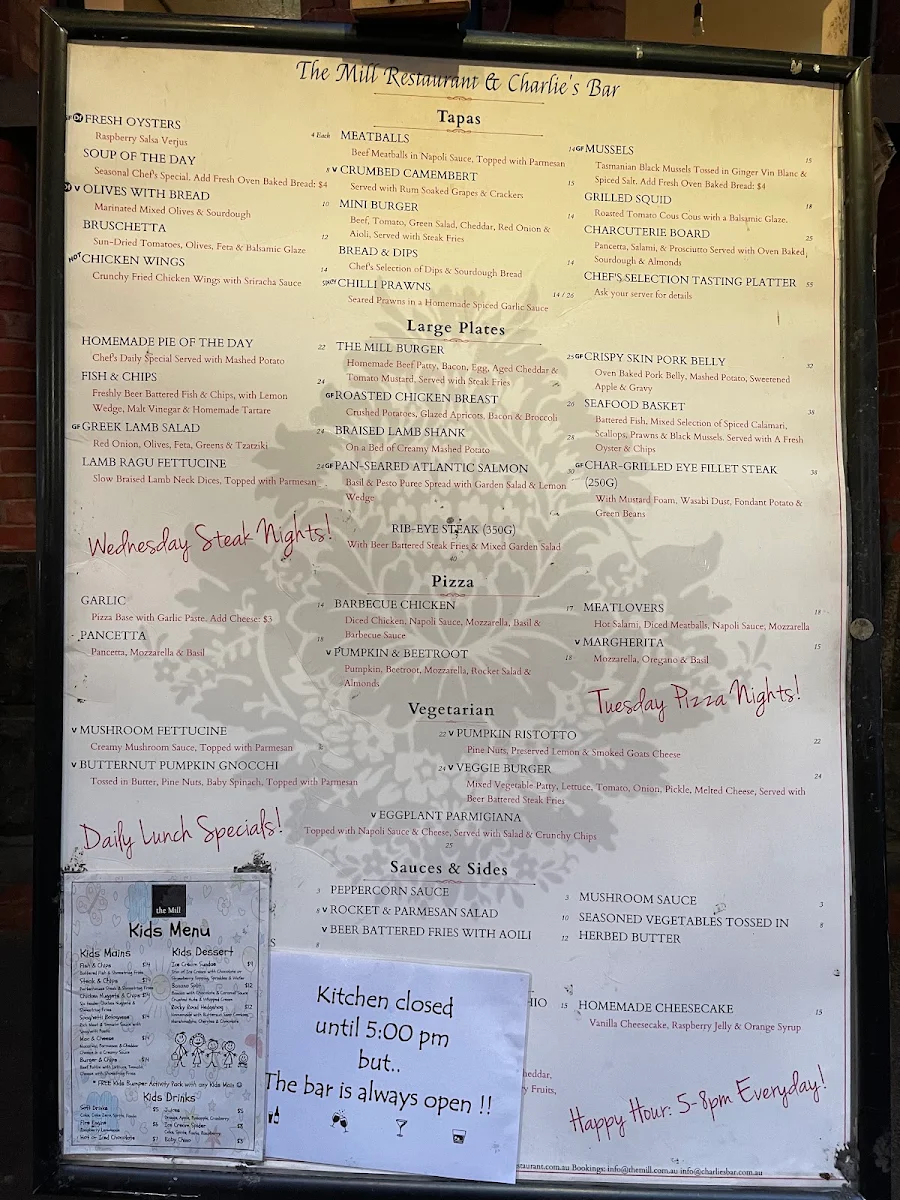 The Mill Restaurant & Charlie's Bar
Tapas
FRESH OYSTERS 4 Each
Raspberry Salsa Verjus
SOUP OF THE DAY 8
Seasonal Chef's Special, Add Fresh Oven Baked Bread: $4
V OLIVES WITH BREAD 10
Marinated Mixed Olives & Sourdough
BRUSCHETTA 12
Sun-Dried Tomatoes, Olives, Feta & Balsamic Glaze
HOT CHICKEN WINGS 14
Crunchy Fried Chicken Wings with Sriracha Sauce
MEATBALLS 14
Beef Meatballs in Napoli Sauce, Topped with Parmesan
V CRUMBED CAMEMBERT 15
Served with Rum Soaked Grapes & Crackers
MINI BURGER 14
Beef, Tomato, Green Salad, Cheddar, Red Onion &
Aioli, Served with Steak Fries
BREAD & DIPS 14
Chef's Selection of Dips & Sourdough Bread
SPICY CHILLI PRAWNS 14 / 26
Seared Prawns in a Homemade Spiced Garlic Sauce
GF MUSSELS 15
Tasmanian Black Mussels Tossed in Ginger Vin Blanc &
Spiced Salt. Add Fresh Oven Baked Bread: $4
GRILLED SQUID 18
Roasted Tomato Cous Cous with a Balsamic Glaze.
CHARCUTERIE BOARD 25
Pancetta, Salami, & Prosciutto Served with Oven Baked
Sourdough & Almonds
CHEF'S SELECTION TASTING PLATTER 59
Ask your server for details
Large Plates
HOMEMADE PIE OF THE DAY 22
Chef's Daily Special Served with Mashed Potato
FISH & CHIPS 24
Freshly Beer Battered Fish & Chips, with Lemon
Wedge, Malt Vinegar & Homemade Tartare
GF GREEK LAMB SALAD 24
Red Onion, Olives, Feta, Greens & Tzatziki
LAMB RAGU FETTUCINE 24
Slow Braised Lamb Neck Dices, Topped with Parmesan
THE MILL BURGER 25
Homemade Beef Patty, Bacon, Egg, Aged Cheddar &
Tomato Mustard, Served with Steak Fries
GF ROASTED CHICKEN BREAST 26
Crushed Potatoes, Glazed Apricots, Bacon & Broccoli
BRAISED LAMB SHANK 28
On a Bed of Creamy Mashed Potato
GF PAN-SEARED ATLANTIC SALMON 30
Basil & Pesto Puree Spread with Garden Salad & Lemon
Wedge
GF CRISPY SKIN PORK BELLY 32
Oven Baked Pork Belly, Mashed Potato, Sweetened
Apple & Gravy
SEAFOOD BASKET 36
Battered Fish, Mixed Selection of Spiced Calamari,
Scallops, Prawns & Black Mussels. Served with A Fresh
Oyster & Chips
GF CHAR-GRILLED EYE FILLET STEAK 38
(250G)
With Mustard Foam, Wasabi Dust, Fondant Potato &
Green Beans
RIB-EYE STEAK (350G)
With Beer Battered Steak Fries & Mixed Garden Salad
40
Wednesday Steak Nights!
Pizza
GARLIC 14
Pizza Base with Garlic Paste. Add Cheese: $3
PANCETTA 18
Pancetta, Mozzarella & Basil
BARBECUE CHICKEN 17
Diced Chicken, Napoli Sauce, Mozzarella, Basil &
Barbecue Sauce
V PUMPKIN & BEETROOT 18
Pumpkin, Beetroot, Mozzarella, Rocket Salad &
Almonds
MEATLOVERS 18
Hot Salami, Diced Meatballs, Napoli Sauce, Mozzarella
V MARGHERITA 15
Mozzarella, Oregano & Basil
Tuesday Pizza Nights!
Vegetarian
V MUSHROOM FETTUCINE 22
Creamy Mushroom Sauce, Topped with Parmesan
V BUTTERNUT PUMPKIN GNOCCHI 24
Tossed in Butter, Pine Nuts, Baby Spinach, Topped with Parmesan
V PUMPKIN RISTOTTO 22
Pine Nuts, Preserved Lemon & Smoked Goats Cheese
V VEGGIE BURGER 24
Mixed Vegetable Patty, Lettuce, Tomato, Onion, Pickle, Melted Cheese, Served with
Beer Battered Steak Fries
V EGGPLANT PARMIGIANA
Topped with Napoli Sauce & Cheese, Served with Salad & Crunchy Chips
25
Daily Lunch Specials!
Sauces & Sides
3 PEPPERCORN SAUCE 3
8 V ROCKET & PARMESAN SALAD 10
V BEER BATTERED FRIES WITH AOILI 12
8
MUSHROOM SAUCE 3
SEASONED VEGETABLES TOSSED IN 8
HERBED BUTTER
S
HIO 15
HOMEMADE CHEESECAKE 15
Vanilla Cheesecake, Raspberry Jelly & Orange Syrup
heddar,
y Fruits,
Happy Hour: 5-8pm Everyday!
staurant.com.au Bookings: info@themill.com.au info@charliesbar.com.au
the Mill
Kids Menu
Kids Mains
Fish & Chips $14
Battered Fish & Shoestring Fries
Steak & Chips
Chicken Nuggets & Chips $14
Shoestring Fries
Spaghetti Bolognese $14
Mac & Cheese $14
Burger & Chips $14
Kids Dessert
Ice Cream Sundae $9
Banana Split $12
Rocky Road Hedgehog $12
* FREE Kids Bumper Activity Pack with any Kids Meal
Kids Drinks
Soft Drinks $5
Fire Engine $6
Raspberry Lemonade
Hot or Iced Chocolate $7
Juices $5
Orange, Apple, Pineapple, Cranberry
Ice Cream Spider $8
Baby Chino $3
Kitchen closed
until 5:00 pm
but..
The bar is always open !!